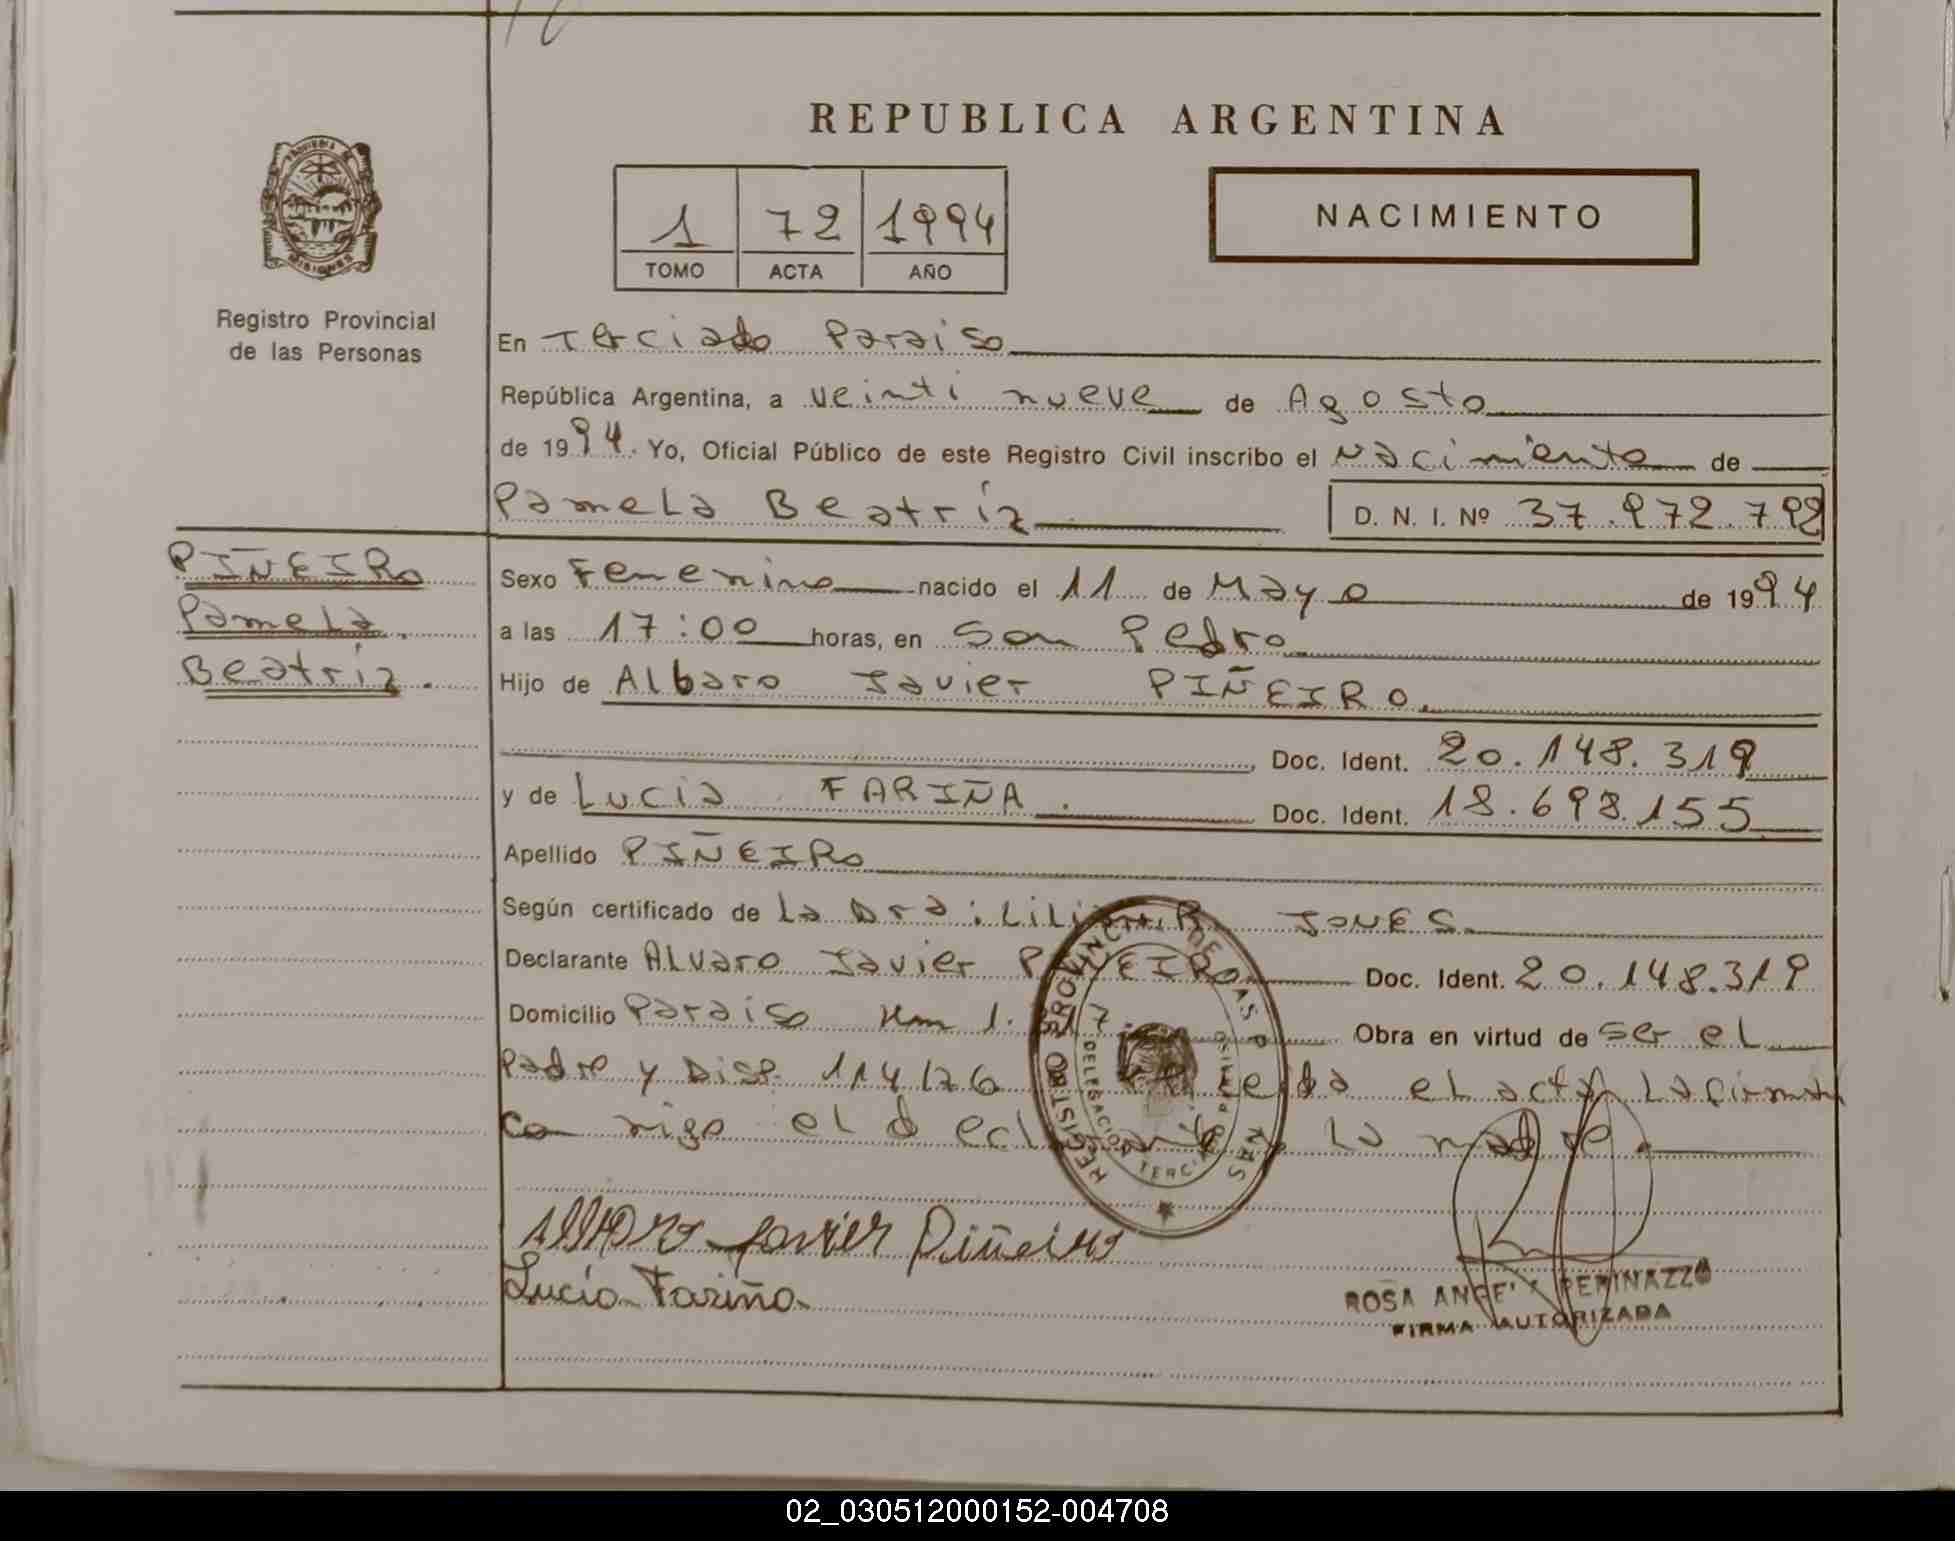 REPUBLICA ARGENTINA
1 72 1994
TOMO ACTA AÑO
NACIMIENTO
PROVINCIA DE MISIONES
Registro Provincial
de las Personas
En Terciado Paraiso
República Argentina, a veinti nueve de Agosto
de 1994. Yo, Oficial Público de este Registro Civil inscribo el Nacimiento de
Pamela Beatríz D. N. I. Nº 37.972.792
PIÑEIRO
Pamela
Beatríz.
Sexo Femenino nacido el 11 de Mayo de 1994
a las 17:00 horas, en San Pedro
Hijo de Albaro Javier PIÑEIRO.
Doc. Ident. 20.148.319
y de Lucia FARIÑA. Doc. Ident. 18.698.155
Apellido PIÑEIRO
Según certificado de La Dra: Lilian R JONES.
Declarante Alvaro Javier PIÑEIRO Doc. Ident. 20.148.319
Domicilio Paraiso Km 1.317. Obra en virtud de ser el
Padre y Disp. 114/76 Leida el acta La firman
con migo el declarante y La madre.
REGISTRO PROVINCIAL DE LAS PERSONAS
DELEGACION TERCIADO PARAISO
Alvaro Javier Piñeiro
Lucía Fariña
ROSA ANGELA PERINAZZO
FIRMA AUTORIZADA
02_030512000152-004708